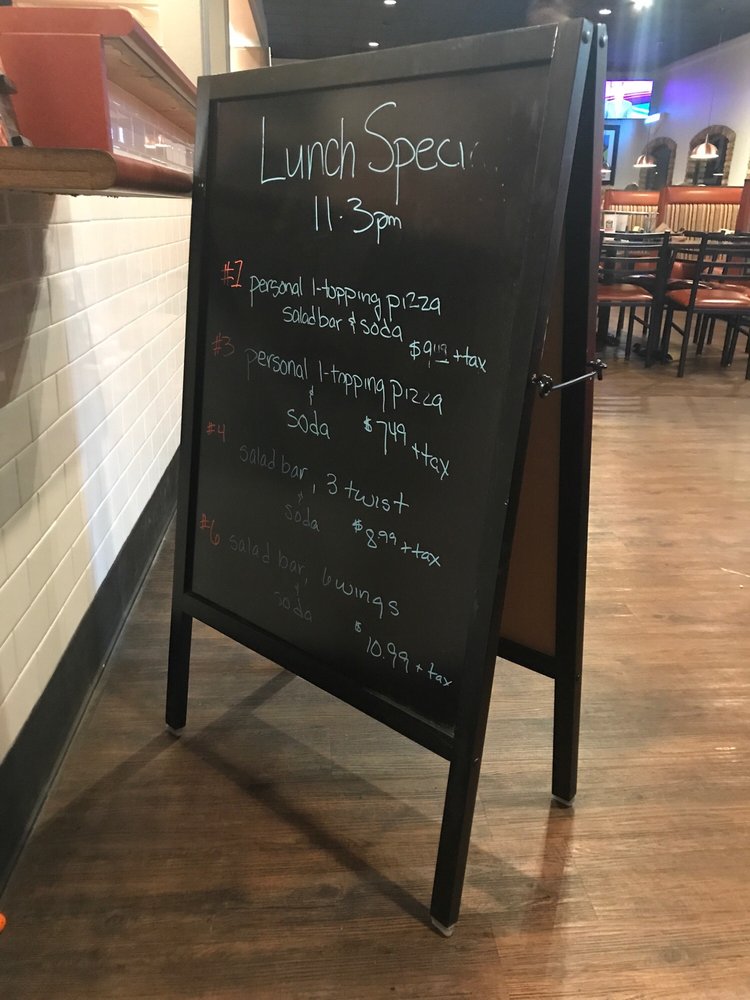 Lunch Speci
11-3pm
#1 personal 1-topping pizza
salad bar & soda $9.49 + tax
#3 personal 1-topping pizza
&
soda $7.49 + tax
#4 salad bar, 3 twist
&
soda $8.99 + tax
#6 salad bar, 6 wings
&
soda $10.99 + tax